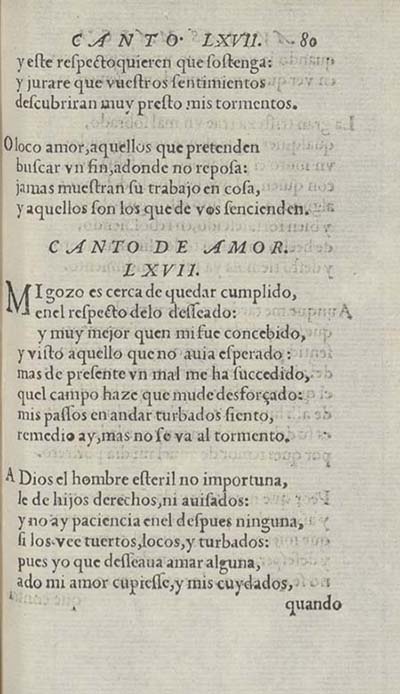 CANTO. LXVII. 80
y este respecto quieren que sostenga:
y jurare que vuestros sentimientos
descubriran muy presto mis tormentos.
O loco amor, aquellos que pretenden
buscar vn fin, adonde no reposa:
jamas muestran su trabajo en cosa,
y aquellos son los que de vos sencienden.
CANTO DE AMOR.
LXVII.
MI gozo es cerca de quedar cumplido,
enel respecto delo desseado:
y muy mejor quen mi fue concebido,
y visto aquello que no auia esperado:
mas de presente vn mal me ha succedido,
quel campo haze que mude desforçado:
mis passos en andar turbados siento,
remedio ay, mas no se va al tormento.
A Dios el hombre esteril no importuna,
le de hijos derechos, ni auisados:
y no ay paciencia enel despues ninguna,
si los vee tuertos, locos, y turbados:
pues yo que desseaua amar alguna,
ado mi amor cupiesse, y mis cuydados,
quando